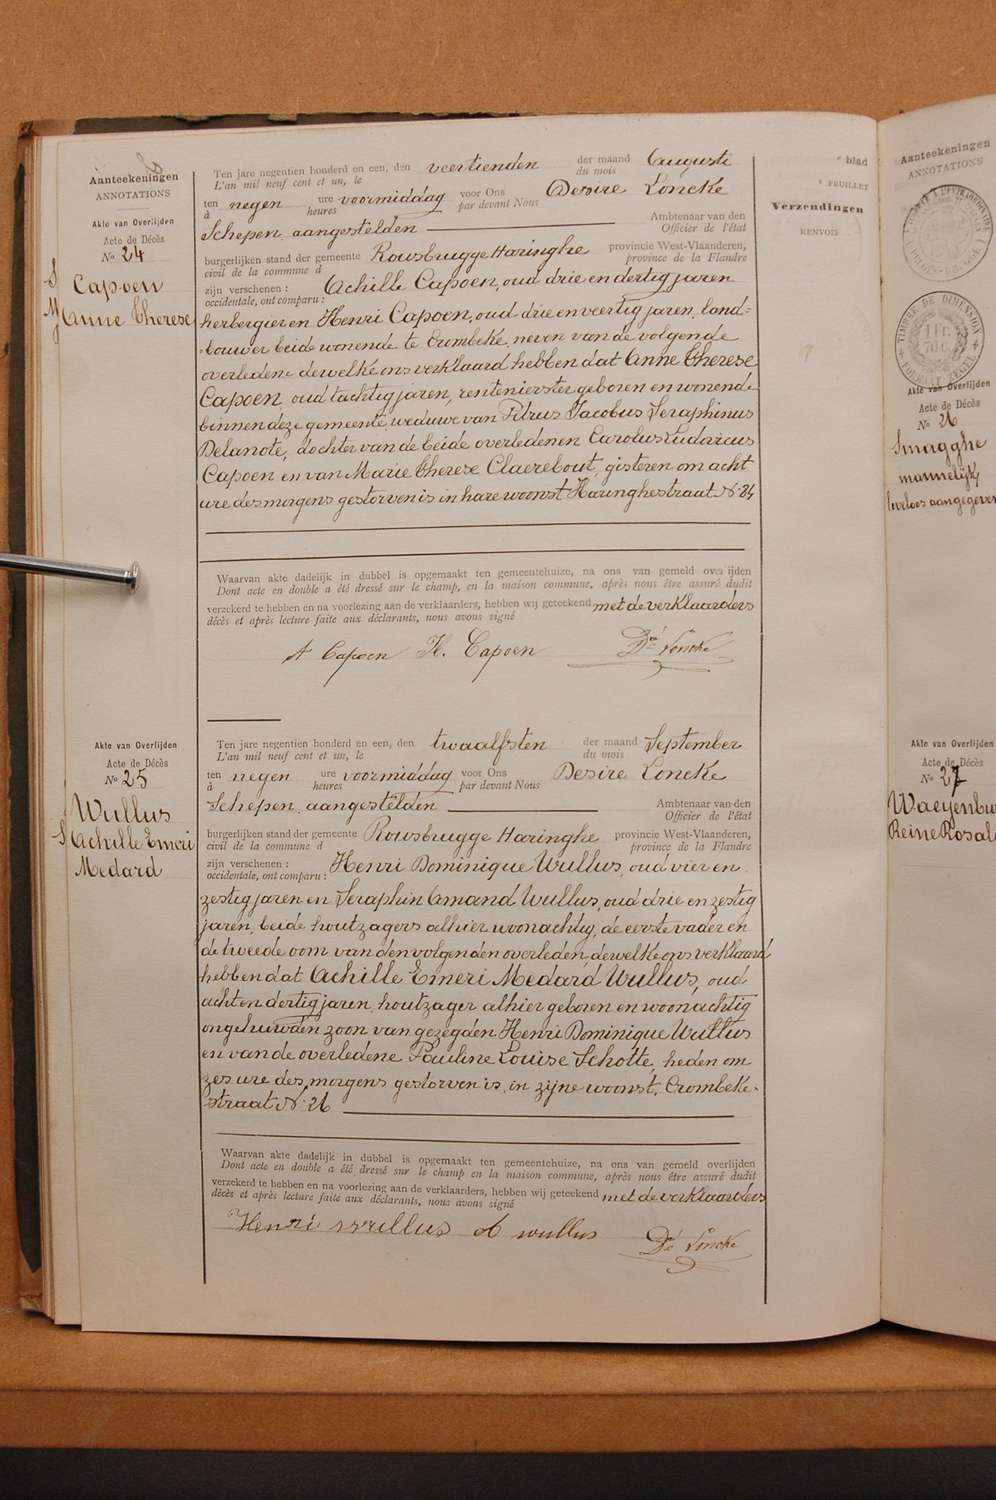 Aanteekeningen
ANNOTATIONS
Akte van Overlijden
Acte de Décès
No 24
Capoen
Anne Therese
Ten jare negentien honderd en een, den veertienden der maand Auguste
L'an mil neuf cent et un, le du mois
ten negen ure voormiddag voor Ons Desire Loncke
à heures par devant Nous
Schepen aangestelden Ambtenaar van den
Officier de l'état
burgerlijken stand der gemeente Rousbrugge Haringhe provincie West-Vlaanderen,
civil de la commune d province de la Flandre
zijn verschenen : Achille Capoen, oud drie en dertig jaren
occidentale, ont comparu :
herbergier en Henri Capoen, oud drie en veertig jaren, land=
bouwer beide wonende te Crombeke, neven van de volgende
overledene dewelke ons verklaard hebben dat Anne Therese
Capoen, oud tachtig jaren, rentenierster geboren en wonende
binnen deze gemeente, weduwe van Pitrus Jacobus Seraphinus
Delanote, dochter van de beide overledenen Carolus Ludovicus
Capoen en van Marie Therese Claerebout, gisteren om acht
ure des morgens gestorven is in hare woonst Haringhestraat No 84
Waarvan akte dadelijk in dubbel is opgemaakt ten gemeentehuize, na ons van gemeld overlijden
Dont acte en double a été dressé sur le champ, en la maison commune, après nous être assuré dudit
verzekerd te hebben en na voorlezing aan de verklaarders, hebben wij geteekend met de verklaarders
décès et après lecture faite aux déclarants, nous avons signé
A Capoen H. Capoen Dré Loncke
Akte van Overlijden
Acte de Décès
No 25
Wullus
Achille Emeri
Medard
Ten jare negentien honderd en een, den twaalfsten der maand September
L'an mil neuf cent et un, le du mois
ten negen ure voormiddag voor Ons Desire Loncke
à heures par devant Nous
Schepen aangestelden Ambtenaar van den
Officier de l'état
burgerlijken stand der gemeente Rousbrugge Haringhe provincie West-Vlaanderen,
civil de la commune d province de la Flandre
zijn verschenen : Henri Dominique Wullus, oud vier en
occidentale, ont comparu :
zestig jaren en Seraphin Amand Wullus, oud drie en zestig
jaren, beide houtzagers alhier woonachtig, de eerste vader en
de tweede oom van den volgenden overleden dewelke ons verklaard
hebben dat Achille Emeri Medard Wullus, oud
acht en dertig jaren, houtzager alhier geboren en woonachtig
ongehuwden zoon van gezegden Henri Dominique Wullus
en van de overledene Pauline Louise Schotte, heden om
zes ure des morgens gestorven is in zijne woonst, Crombeke-
straat No 26
Waarvan akte dadelijk in dubbel is opgemaakt ten gemeentehuize, na ons van gemeld overlijden
Dont acte en double a été dressé sur le champ en la maison commune, après nous être assuré dudit
verzekerd te hebben en na voorlezing aan de verklaarders, hebben wij geteekend met de verklaarders
décès et après lecture faite aux déclarants, nous avons signé
Henri Wullus A wullus Dé Loncke
blad
FEUILLET
Verzendingen
RENVOIS
Aanteekeningen
ANNOTATIONS
TIMBRE DE DIMENSION
1 Fr.
70 C.
FORMAAT ZEGEL
Akte van Overlijden
Acte de Décès
No 26
Smagghe
mannelijk
levloos aangegeven
Akte van Overlijden
Acte de Décès
No 27
Waeyenbu
Reine Rosal